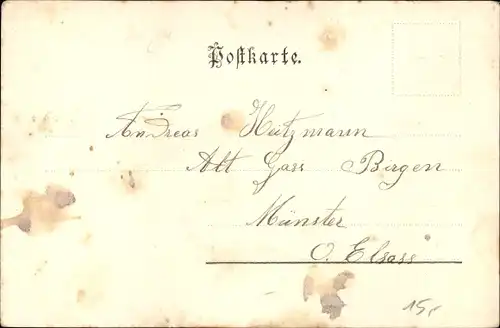 Postkarte.
Andreas Heitzmann
Alt Gass Bergen
Münster
O. Elsass
15,-